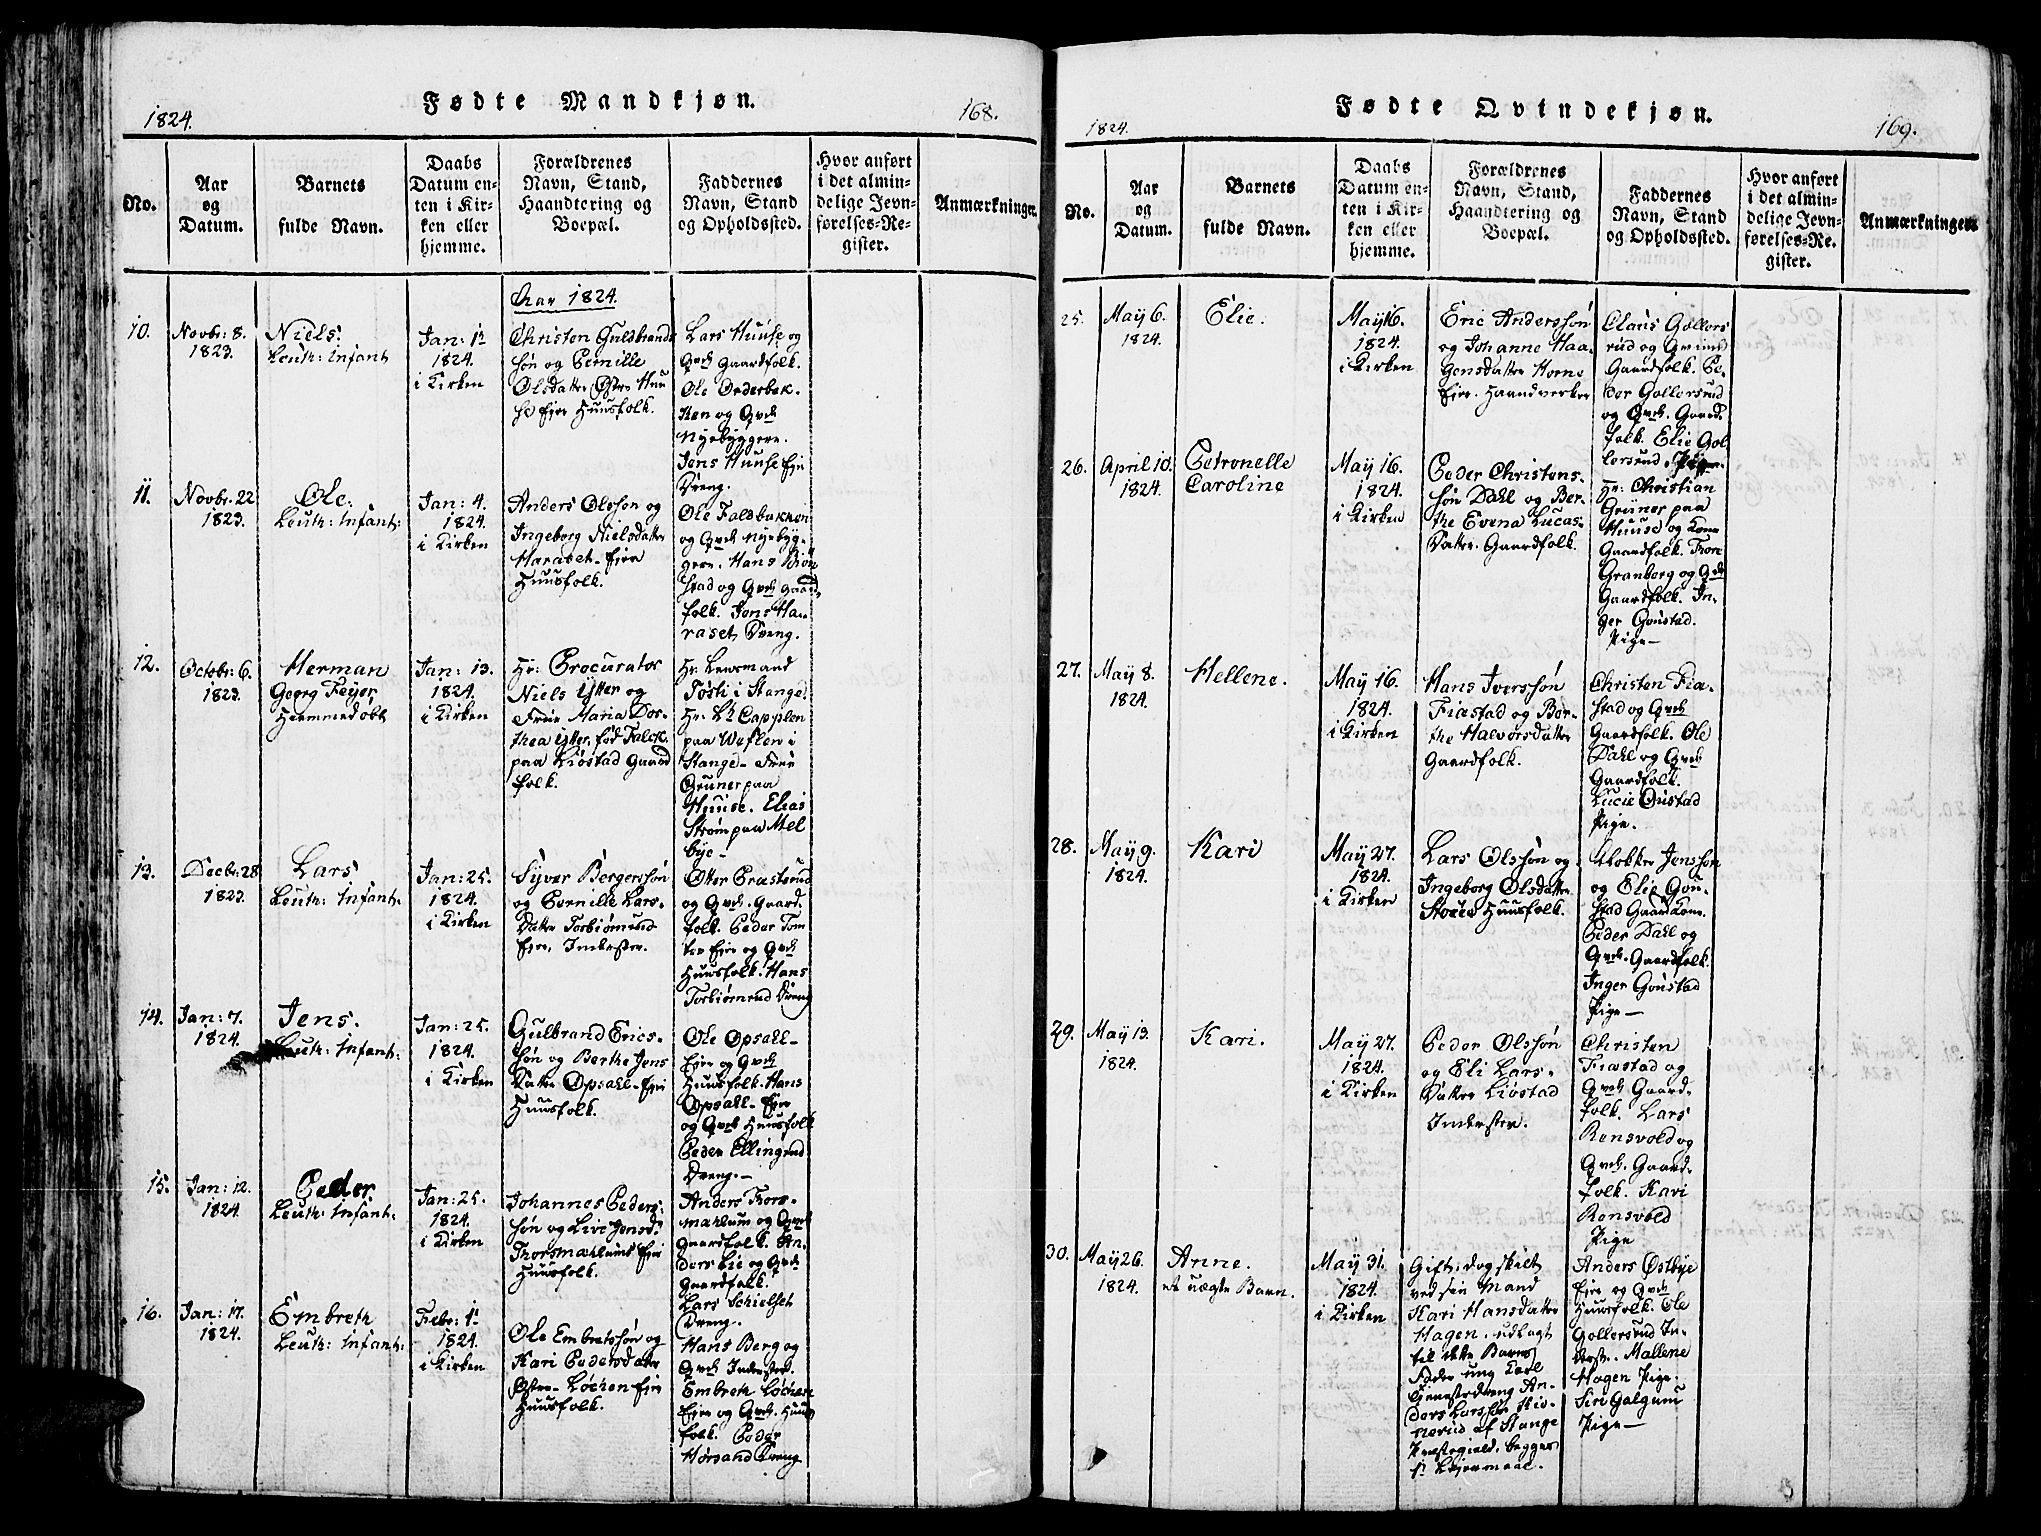 Fødte Mandkjøn.
1824.
168.
No.
Aar
og
Datum.
Barnets
fulde Navn.
Daabs
Datum en-
ten i Kir-
ken eller
hjemme.
Forældrenes
Navn, Stand,
Haandtering og
Boepæl.
Faddernes
Navn, Stand
og Opholdssted.
Hvor anført
i det almin-
delige Jevn-
førelses-Re-
gister.
Anmærkninger.
Aar 1824.
10.
Novbr: 8.
1823.
Niels.
Leuth: Infant
Jan: 1st
1824.
i Kirken
Christen Guldbrands
søn og Pernille
Olsdatter Østre Huu
se Eje Huusfolk.
Lars Huuse og
Qvde Gaardfolk.
Ole Onderbak-
ken og Qvde
Nyebyggere.
Jens Huuse Eje
Dreng.
11.
Novbr. 22
1823.
Ole.
Leuth: Infant:
Jan: 4.
1824.
i Kirken
Anders Olssøn og
Ingeborg Nielsdatter
Haraset- Eje
Huusfolk.
Ole Faldbakken
og Qvde Nyebyg-
gere. Hans Biøn
stad og Qvde Gaard
folk. Jens Ha-
raset, Dreng.
12.
Octobr. 6.
1823.
Herman
Georg Feyer
Hiemmedøbt
Jan: 13.
1824.
i Kirken
Hr: Procurator
Niels Ytter og
Frue Maria Dor-
thea Ytter, fød Falck.
paa Liøstad Gaard
folk.
Hr: Lensmand
Tøsti i Stange.
Hr: Lt Capplen
paa Weflen i
Stange- Frue
Gruner paa
Huuse. Elias
Strøm paa Mel
bye-
13.
Decbr. 28
1823.
Lars
Leuth: Infant:
Jan: 25.
1824.
i Kirken
Syver Bergerssøn
og Pernille Lars-
datter Torbiørnrud
Eje, Inderster.
Otter Præsterud
og Qvde. Gaard-
folk. Peder Tom
ter Eje og Qvde
Huusfolk. Hans
Torbiørnrud Dreng
14.
Jan: 7.
1824.
Jens.
Leuth: Infant:
Jan: 25.
1824.
i Kirken
Gulbrand Erics-
søn og Berthe Jens
datter Opsahl- Eje
Huusfolk.
Ole Opsahl-
Eje og Qvde
Huusfolk. Hans
Opsahl- Eje
og Qvde Huusfolk
Peder Ellingrud
Dreng.-
15.
Jan: 12.
1824.
Peder
Leuth: Infant:
Jan: 25.
1824.
i Kirken
Johannes Peders-
søn og Live Jensd:
Thorsmæhlums Eje
Huusfolk.
Anders Thors-
mæhlum og Qvde
Gaardfolk. An-
ders Lie og Qvde
Gaardfolk.
Lars Schielset
Dreng.
16.
Jan: 17.
1824.
Embreth
Leuth: Infant:
Febr: 1st
1824.
i Kirken
Ole Embretssøn og
Kari Pedersdatter
Østre- Løchen Eje
Huusfolk.
Hans Berg og
Qvde Inderster.
Embreth Løchen
Eje og Qvde. Huus
folk. Peder
Horsand Dreng
Fødte Qvindekjøn.
1824.
169.
No.
Aar
og
Datum.
Barnets
fulde Navn.
Daabs
Datum en-
ten i Kir-
ken eller
hjemme.
Forældrenes
Navn, Stand,
Haandtering og
Boepæl.
Faddernes
Navn, Stand
og Opholdssted.
Hvor anført
i det almin-
delige Jevn-
førelses-Re-
gister.
Anmærkninger
25.
May 6.
1824.
Elie.
May 16.
1824.
i Kirken
Eric Anderssøn
og Johanne Haa-
gensdatter Horne
Eje. Haandverker
Claus Gollers
rud og Qvinde
Gaardfolk. Pe-
der Gollersrud
og Qvde. Gaard-
folk. Elie Gol
lersrud. Pige.
26.
April 10.
1824.
Petronelle
Caroline
May 16.
1824.
i Kirken
Peder Christens-
søn Dahl og Ber-
the Evena Lucas-
datter. Gaardfolk.
Hr. Christian
Gruner paa
Huuse og Kone
Gaardfolk. Tron
Granberg og Qvde
Gaardfolk. In-
ger Gonstad.
Pige-
27.
May 8.
1824.
Hellene.
May 16.
1824.
i Kirken
Hans Iverssøn
Fiæstad og Ber-
the Halvorsdatter
Gaardfolk.
Christen Fiæ-
stad og Qvde
Gaardfolk. Ole
Dahl og Qvde
Gaardfolk.
Lucie Onstad
Pige.
28.
May 9.
1824.
Kari
May 27.
1824.
i Kirken
Lars Olssøn og
Ingeborg Olsdatter
Storee Huusfolk.
Jenssøn
og Elie Gon-
stad Gaardkone.
Peder Dahl og
Qvde. Gaardfolk.
Inger Gonstad
Pige-
29.
May 13.
1824.
Kari.
May 27.
1824.
i Kirken
Peder Olssøn
og Eli Lars-
datter Liøstad
Inderster.
Christen
Fiæstad og
Qvde Gaard-
folk. Lars
Rensvold og
Qvde. Gaard-
folk. Kari
Rensvold
Pige
30.
May 26.
1824.
Anne.
et uægte Barn.
May 31.
1824.
i Kirken
Gift, dog skilt
ved sin Mand
Kari Hansdatter
Hagen, udlagt
til dette Barns
Fader ung Karl
Tjenestedreng An-
ders Larssøn
af Stange
Præstegield, begges
1st Leiermaal.
Anders Østbye
Eje og Qvde
Huusfolk. Ole
Gollersrud In-
derst. Mallene
Hagen Pige.
Siri Galgum
Pige-